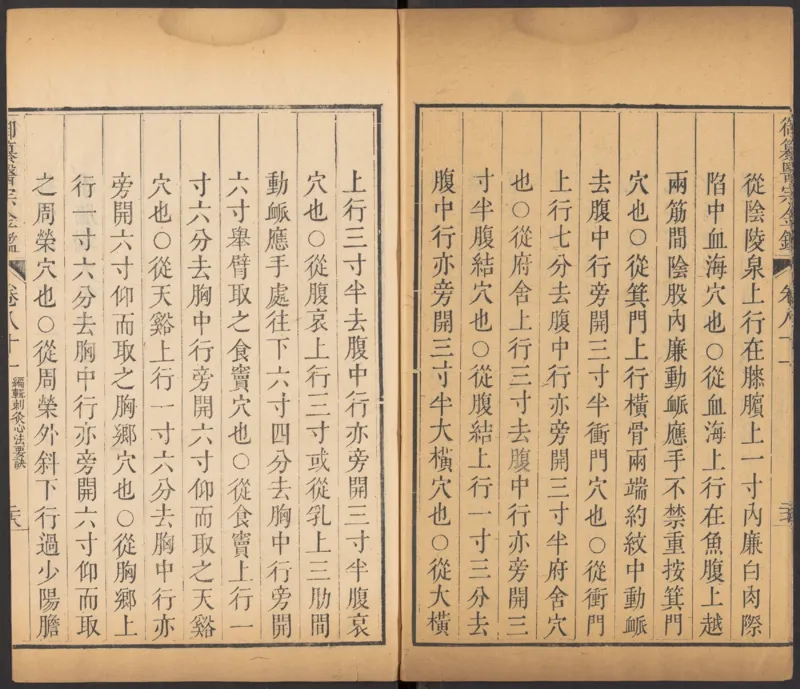 御纂醫宗金鑑
卷八十一
從陰陵泉上行在膝臏上一寸內廉白肉際
陷中血海穴也○從血海上行在魚腹上越
兩筋間陰股內廉動衇應手不禁重按箕門
穴也○從箕門上行橫骨兩端約紋中動衇
去腹中行旁開三寸半衝門穴也○從衝門
上行七分去腹中行亦旁開三寸半府舍穴
也○從府舍上行三寸去腹中行亦旁開三
寸半腹結穴也○從腹結上行一寸三分去
腹中行亦旁開三寸半大橫穴也○從大橫
上行三寸半去腹中行亦旁開三寸半腹哀
穴也○從腹哀上行三寸或從乳上三肋間
動衇應手處往下六寸四分去胸中行旁開
六寸舉臂取之食竇穴也○從食竇上行一
寸六分去胸中行旁開六寸仰而取之天谿
穴也○從天谿上行一寸六分去胸中行亦
旁開六寸仰而取之胸鄉穴也○從胸鄉上
行一寸六分去胸中行亦旁開六寸仰而取
之周榮穴也○從周榮外斜下行過少陽膽
御纂醫宗金鑑
卷八十一
編輯刺灸心法要訣